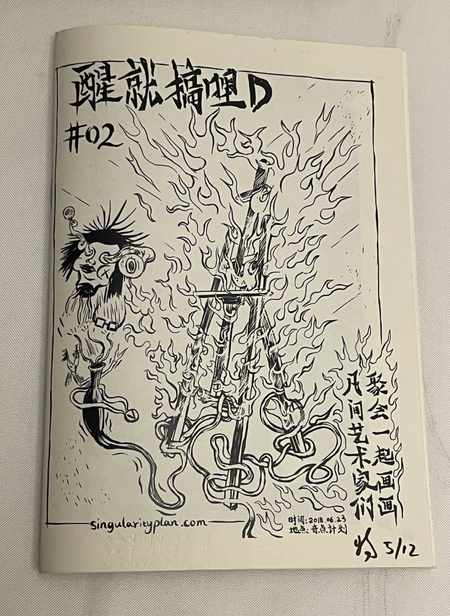 醒就搞哩D
#02
凡间艺术家们
聚会一起画画
singularityplan.com
时间:2018.06.23
地点:奇点计划
5/12